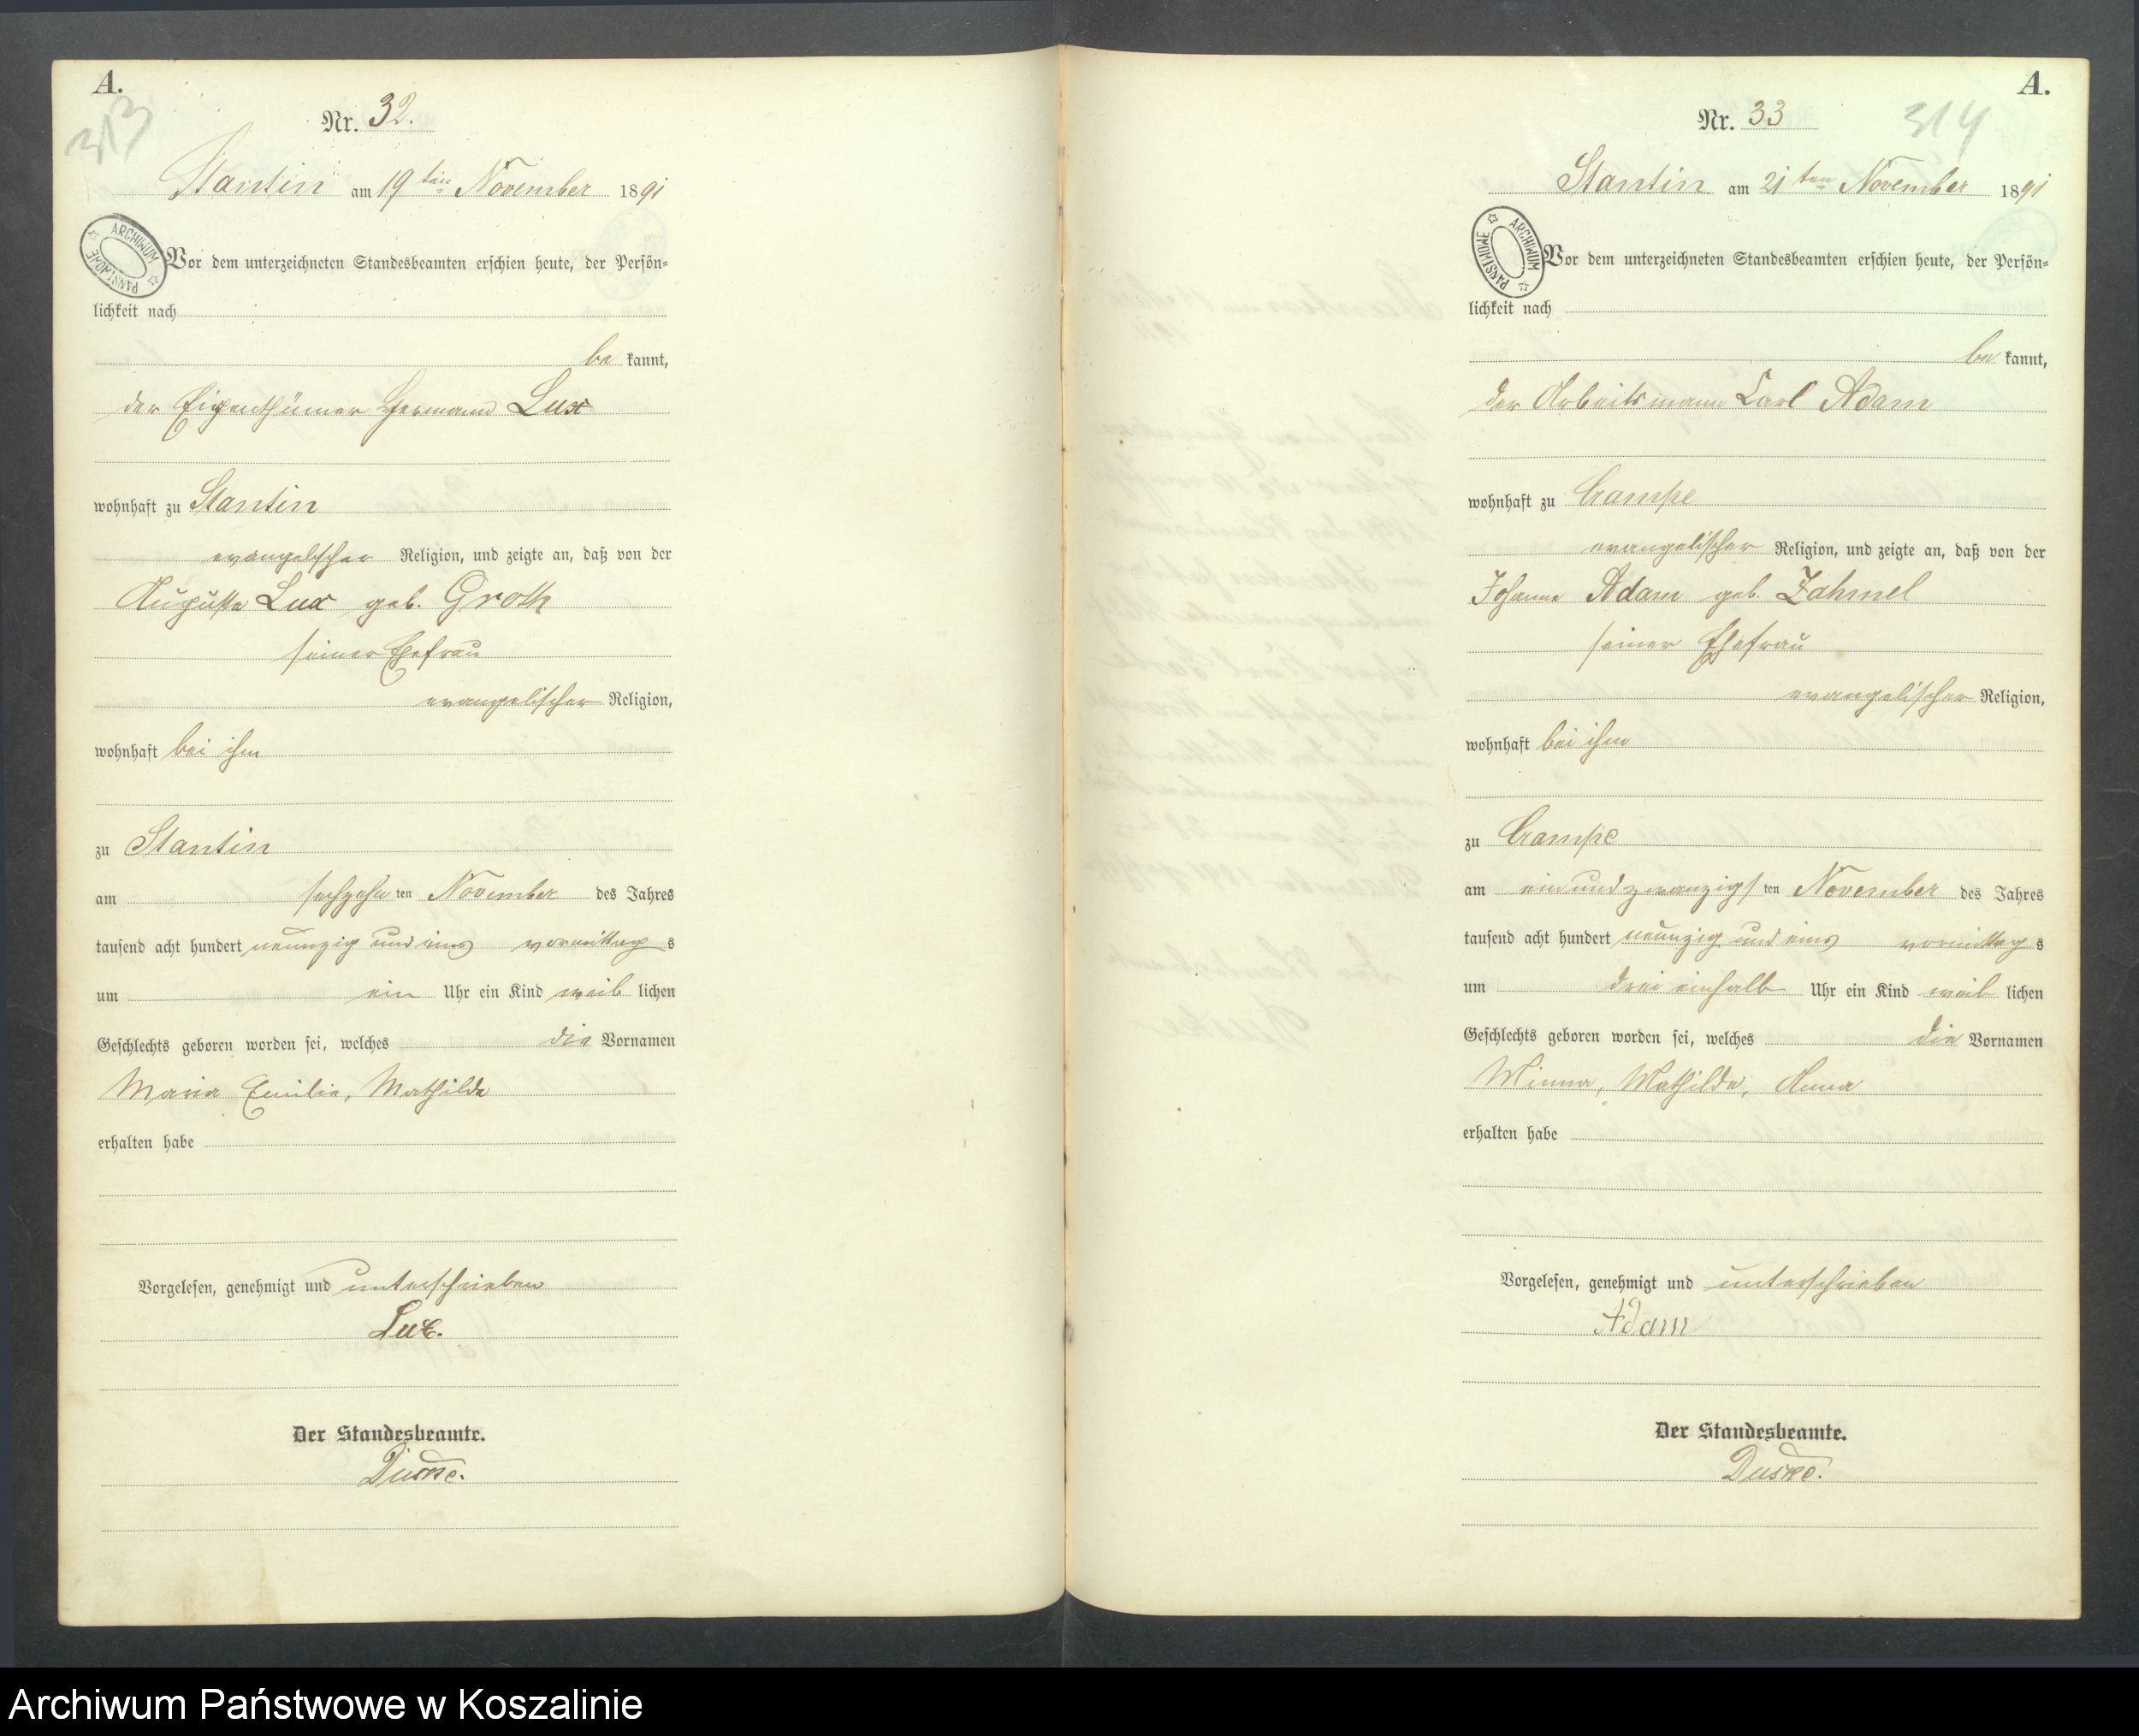 A.
313
Nr. 32.
Stantin am 19ten November 1891
ARCHIWUM PAŃSTWOWE
Vor dem unterzeichneten Standesbeamten erschien heute, der Persön-
lichkeit nach
be kannt,
der Eigenthümer Hermann Lux
wohnhaft zu Stantin
evangelischer Religion, und zeigte an, daß von der
Auguste Lux geb. Groth
seiner Ehefrau
evangelischer Religion,
wohnhaft bei ihm
zu Stantin
am sechzehn ten November des Jahres
tausend acht hundert neunzig und eins vormittag s
um ein Uhr ein Kind weib lichen
Geschlechts geboren worden sei, welches die Vornamen
Maria Emilie, Mathilde
erhalten habe
Vorgelesen, genehmigt und unterschrieben
Lux.
Der Standesbeamte.
A.
314
Nr. 33
Stantin am 21ten November 1891
ARCHIWUM PAŃSTWOWE
Vor dem unterzeichneten Standesbeamten erschien heute, der Persön-
lichkeit nach
be kannt,
der Arbeitsmann Carl Adam
wohnhaft zu Crampe
evangelischer Religion, und zeigte an, daß von der
Johanne Adam geb. Zahmel
seiner Ehefrau
evangelischer Religion,
wohnhaft bei ihm
zu Crampe
am einundzwanzigs ten November des Jahres
tausend acht hundert neunzig und eins vormittag s
um drei einhalb Uhr ein Kind weib lichen
Geschlechts geboren worden sei, welches die Vornamen
Minna, Mathilde, Anna
erhalten habe
Vorgelesen, genehmigt und unterschrieben
Adam
Der Standesbeamte.
Archiwum Państwowe w Koszalinie